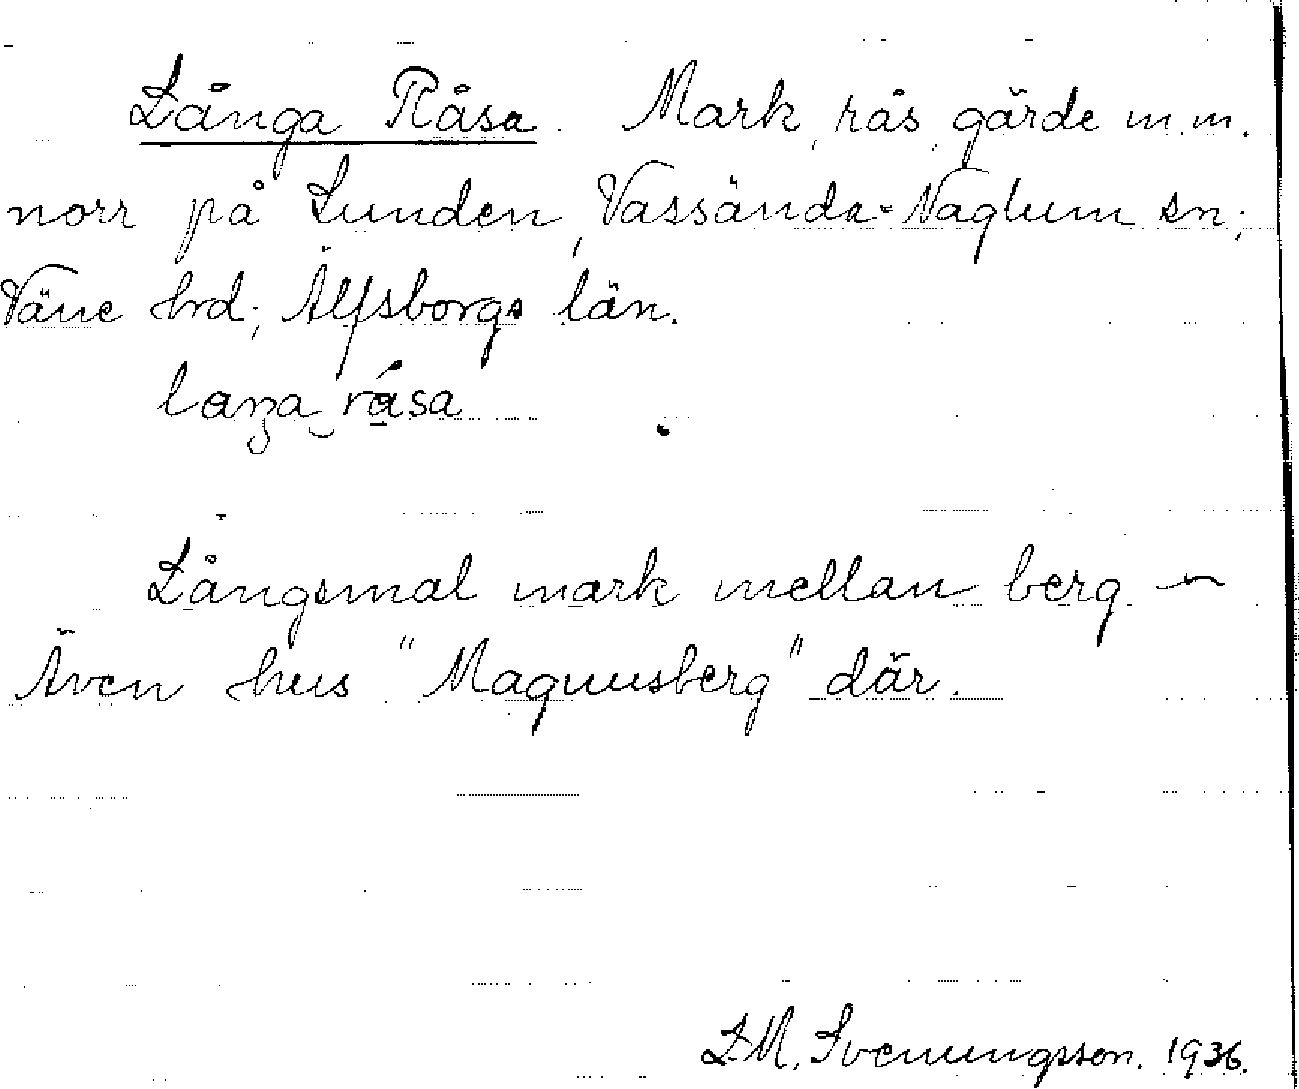 Långa Råsa. Mark, rås, gärde m.m.
norr på Lunden, Vassända-Naglum sn;
Väne hrd; Älfsborgs län.
laŋa råsa
Långsmal mark mellan berg –
Även hus "Magnusberg" där.
L.M. Svenungsson. 1936.